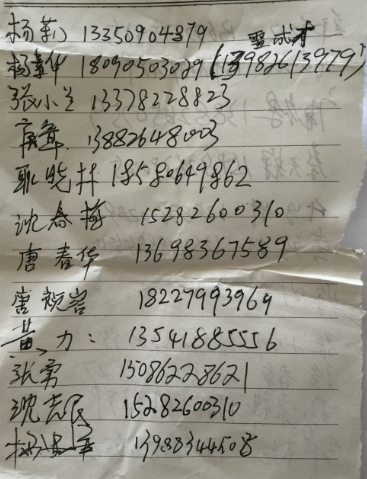 杨莉 13350904879
杨春华 18090503029 (13982613979)
张小兰 13378228823
13882648003
耿晓林 18580649862
沈春梅 15282600310
唐春华 13698367589
唐 18227993969
黄力: 13541885556
张勇 15086228621
沈志 15282600310
杨 13983344508